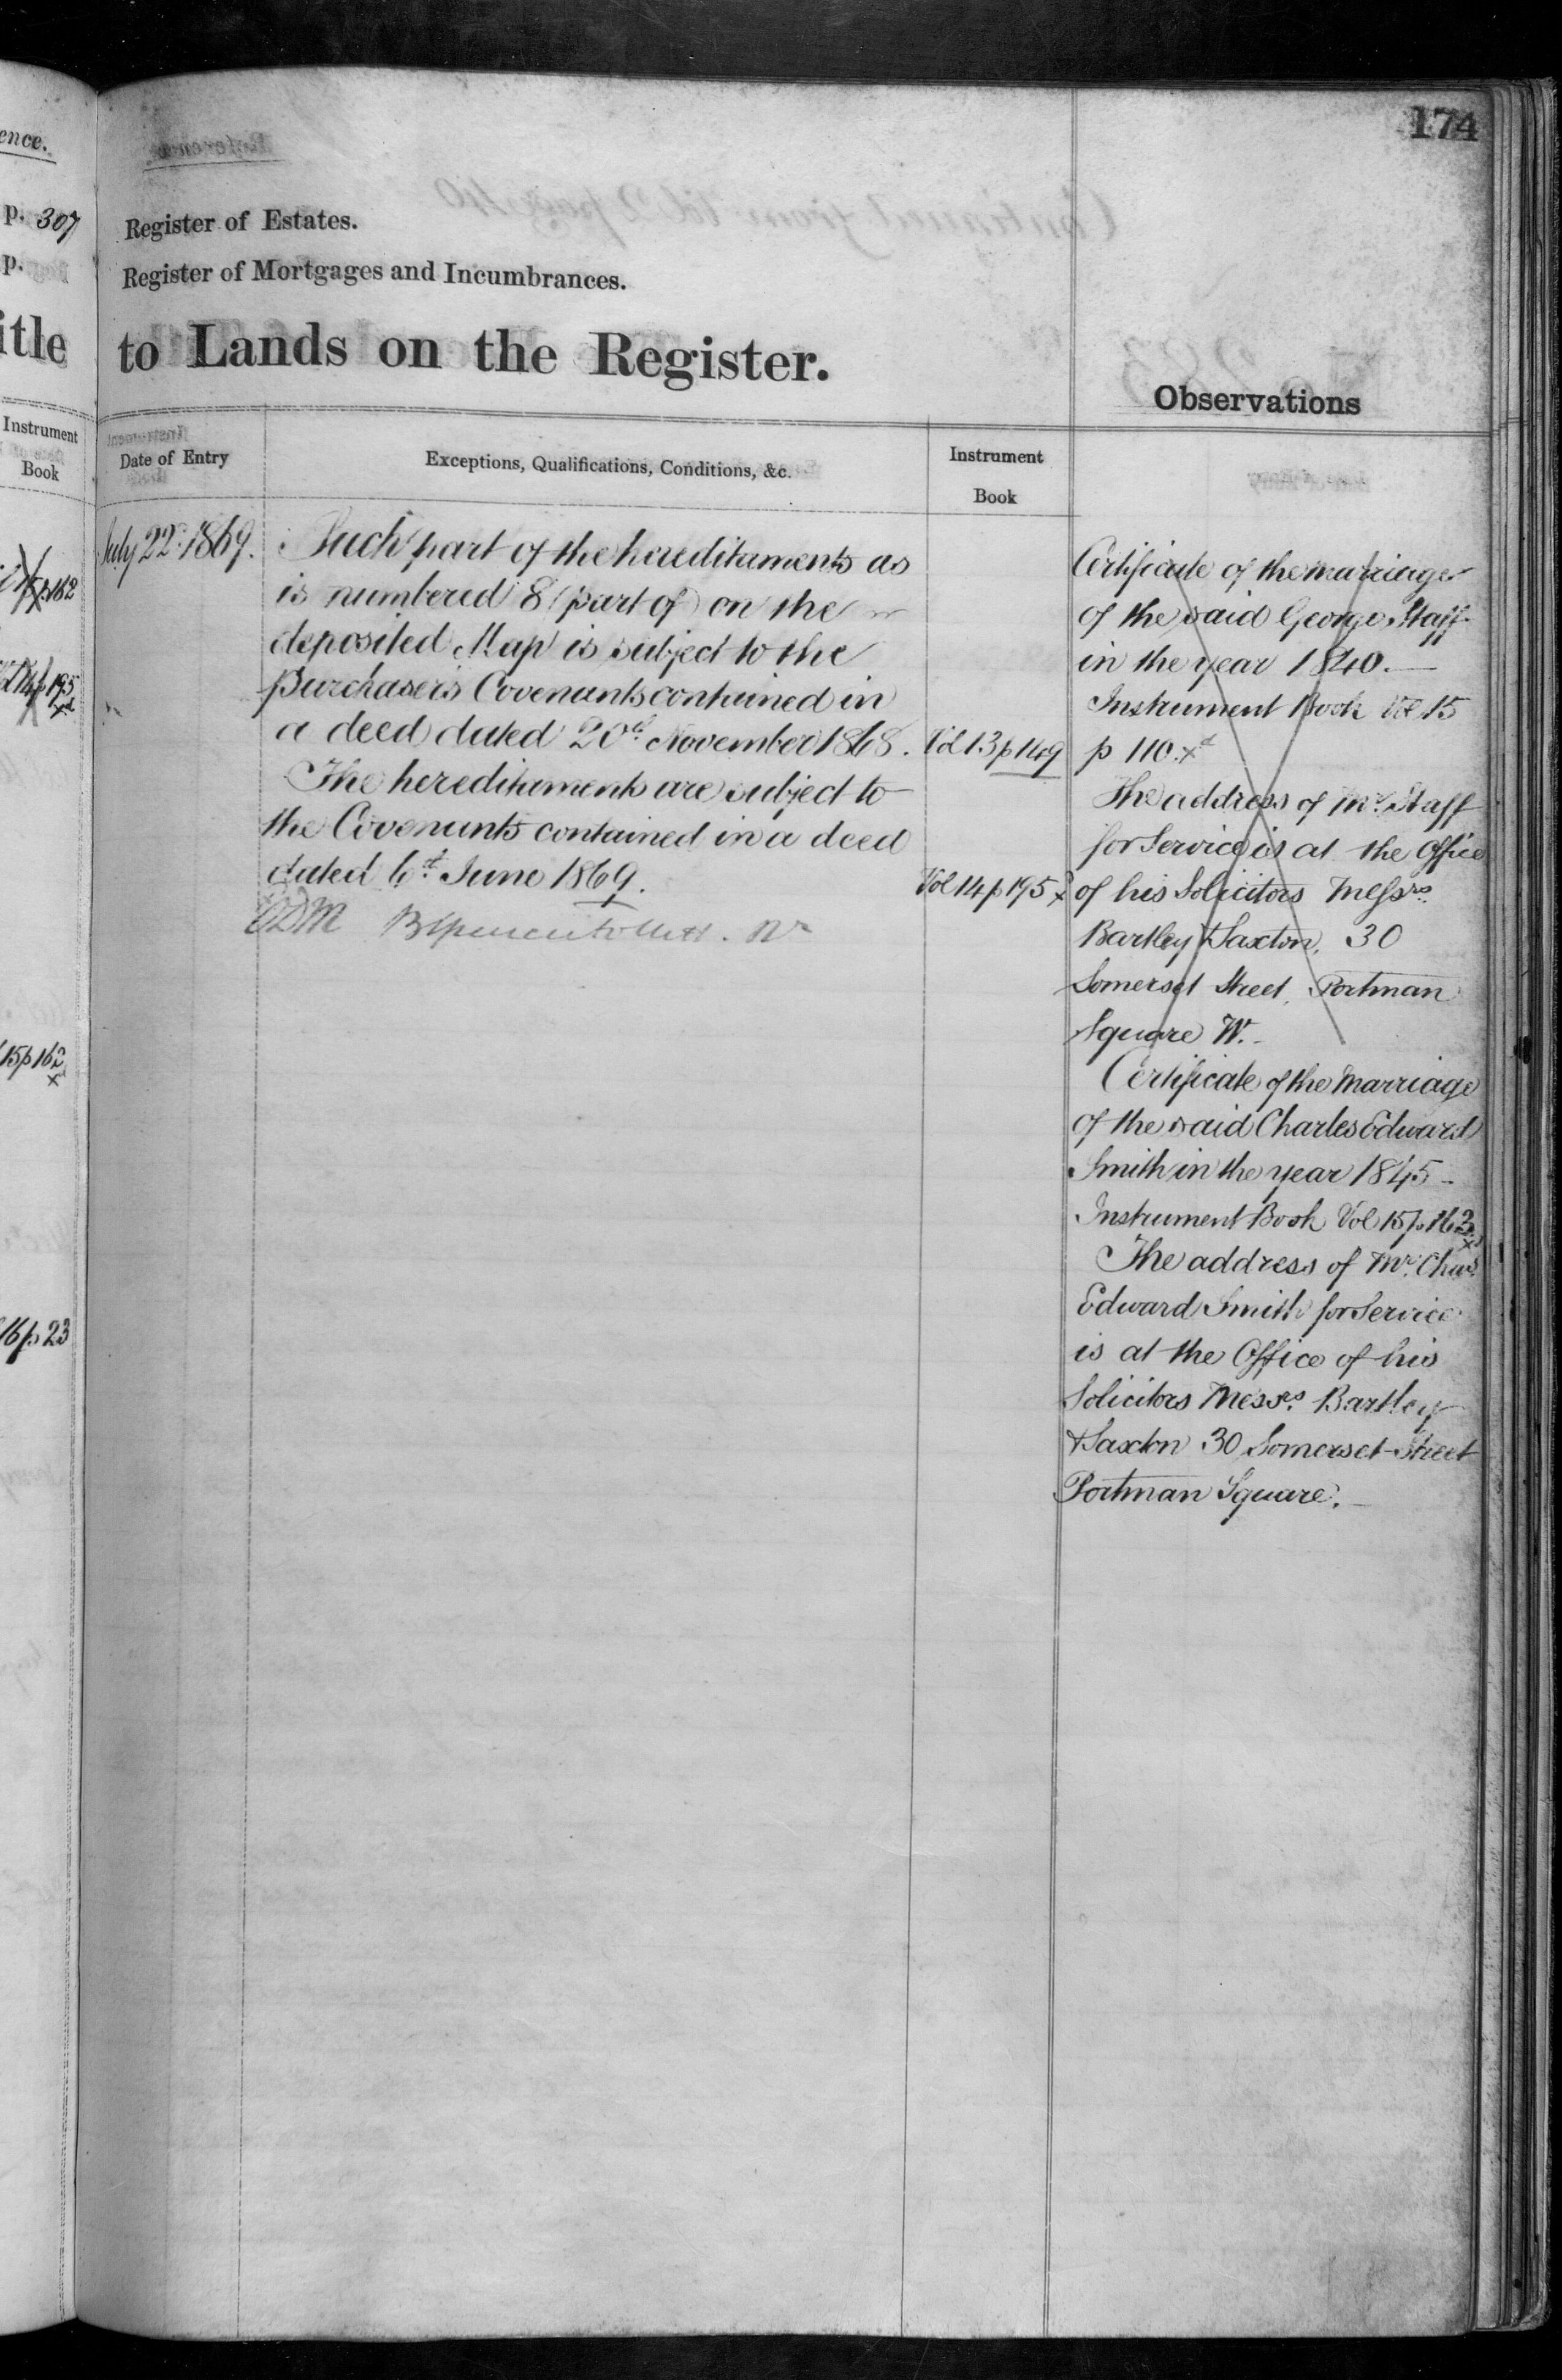 174
ence.
p. 307
p.
itle
Instrument
Book
162
195
15 p 162
16 p 23
Register of Estates.
Register of Mortgages and Incumbrances.
to Lands on the Register.
Observations
Date of Entry
Exceptions, Qualifications, Conditions, &c.
Instrument
Book
July 22d 1869.
Such part of the hereditaments as
is numbered 8 (part of) on the
deposited Map is subject to the
Purchaser's Covenants contained in
a deed dated 20th November 1868. Vol 13 p 149
The hereditaments are subject to
the Covenants contained in a deed
dated 6th June 1869. Vol 14 p 195
Certificate of the marriage
of the said George Staff
in the year 1840.
Instrument Book Vol 15
p 110
The address of Mr. Staff
for Service is at the Office
of his Solicitors Messrs.
Bartley & Saxton, 30
Somerset Street, Portman
Square W.
Certificate of the Marriage
of the said Charles Edward
Smith in the year 1845
Instrument Book Vol 15 p 163
The address of Mr. Chas.
Edward Smith for Service
is at the Office of his
Solicitors Messrs. Bartley
& Saxton 30 Somerset Street
Portman Square.